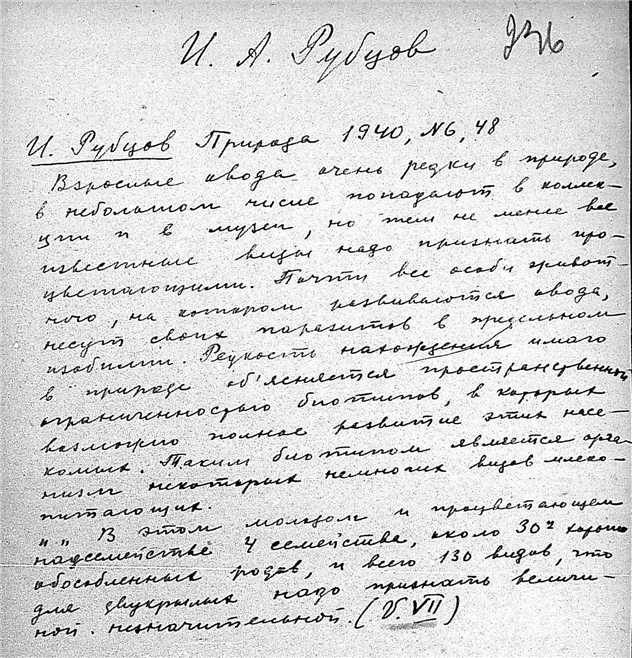 И. А. Рубцов
И. Рубцов Природа 1940, №6, 48
Взрослые овода очень редки в природе,
в небольшом числе попадают в коллек-
ции и в музеи, но тем не менее все
известные виды надо признать про-
цветающими. Почти все особи живот-
ного, на котором развиваются овода,
несут своих паразитов в предельном
изобилии. Редкость нахождения имаго
в природе об'ясняется пространственной
ограниченностью биотипов, в которых
возможно полное развитие этих насе-
комых. Таким биотипом является орга-
низм некоторых немногих видов млеко-
питающих.
" " В этом молодом и процветающем
надсемействе 4 семейства, около 30 хорошо
обособленных родов, и всего 130 видов, что
для двукрылых надо признать величи-
ной незначительной. (V. VII)